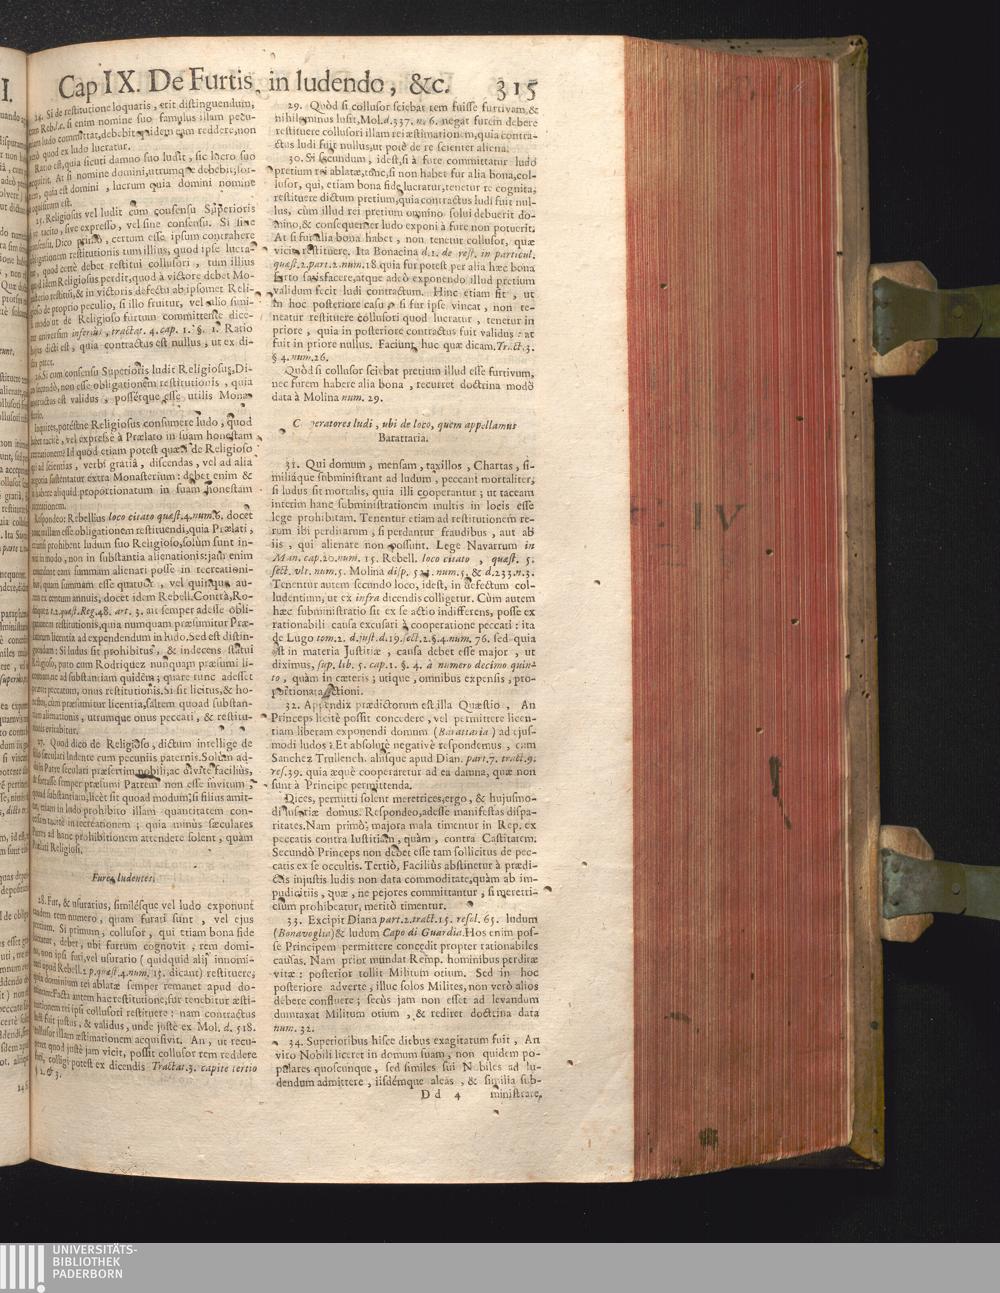 Cap IX. De Furtis in ludendo, &c. 315
24. Si de restitutione loquaris, erit distinguendum;
si enim nomine suo famulus illam pecu-
ludo committat, debebit quidem eam reddere, non
quod ex ludo lucratur.
Ratio est, quia sicuti damno suo ludit, sic lucro suo
acquirit. At si nomine domini, utrumque debebit; sor-
quia est domini, lucrum quia domini nomine
acquisitum est.
25. Religiosus vel ludit cum consensu Superioris
tacito, sive expresso, vel sine consensu. Si sine
consensu, Dico primò, certum esse ipsum contrahere
obligationem restitutionis tum illius, quod ipse lucra-
quod certè debet restitui collusori, tum illius
quod idem Religiosus perdit, quod à victore debet Mo-
nasterio restitui, & in victoris defectu ab ipsomet Reli-
gioso de proprio peculio, si illo fruitur, vel alio simi-
modo ut de Religioso furtum committente dice-
universim inferius, tractat. 4. cap. 1. §. 1. Ratio
hujus dicti est, quia contractus est nullus, ut ex di-
patet.
26. Si cum consensu Superioris ludit Religiosus, Di-
co secundò, non esse obligationem restitutionis, quia
contractus est validus, possetque esse utilis Mona-
sterio.
Inquires, potéstne Religiosus consumere ludo, quod
habet tacitè, vel expressè à Prælato in suam honestam
recreationem? Id quod etiam potest quæri de Religioso
ad scientias, verbi gratiâ, discendas, vel ad alia
negotia sustentatur extra Monasterium: debet enim &
habere aliquid proportionatum in suam honestam
recreationem.
Respondeo: Rebellius loco citato quæst. 4. num. 6. docet
nullam esse obligationem restituendi, quia Prælati,
prohibent ludum suo Religioso, solùm sunt in-
in modo, non in substantia alienationis: jam enim
eam summam alienari posse in recreationi-
bus, quam summam esse quatuor, vel quinque au-
centum annuis, docet idem Rebell. Contrà, Ro-
driquez 1.2. quæst. Reg. 48. art. 3. ait semper adesse obli-
gationem restitutionis, quia numquam præsumitur Præ-
latorum licentia ad expendendum in ludo. Sed est distin-
guendum: Si ludus sit prohibitus, & indecens statui
Religioso, puto cum Rodriquez nunquam præsumi li-
centiam, ne ad substantiam quidem; quare tunc adesset
præter peccatum, onus restitutionis. Si sit licitus, & ho-
nestus, cùm præsumitur licentia, saltem quoad substan-
tiam alienationis, utrumque onus peccati, & restitu-
tionis evitabitur.
27. Quod dico de Religioso, dictum intellige de
filio sæculari ludente cum pecuniis paternis. Solùm ad-
in Patre seculari præsertim nobili, ac divite facilius,
& fortasse semper præsumi Patrem non esse invitum,
quoad substantiam, licèt sit quoad modum; si filius amit-
etiam in ludo prohibito illam quantitatem con-
tacitè in recreationem; quia minùs sæculares
ad hanc prohibitionem attendere solent, quàm
Prælati Religiosi.
Fures ludentes.
28. Fur, & usurarius, similésque vel ludo exponunt
eandem rem numero, quam furati sunt, vel ejus
pretium. Si primum, collusor, qui etiam bona fide
lucratur, debet, ubi furtum cognovit, rem domi-
no, non ipsi furi, vel usurario (quidquid alij innomi-
nati apud Rebell. 2 p. quæst. 4. num. 15. dicant) restituere;
quia dominium rei ablatæ semper remanet apud do-
minum: Facta autem hac restitutione, fur tenebitur æsti-
mationem rei ipsi collusori restituere: nam contractus
fuit justus, & validus, unde justè ex Mol. d. 518.
collusor illam æstimationem acquisivit. An, ut recu-
peret quod justè jam vicit, possit collusor rem reddere
furi, colligi potest ex dicendis Tractat. 3. capite tertio
§ 2. & 3.
29. Quòd si collusor sciebat rem fuisse furtivam, &
nihilominus lusit, Mol. d. 337. n. 6. negat furem debere
restituere collusori illam rei æstimationem, quia contra-
ctus ludi fuit nullus, ut potè de re scienter aliena.
30. Si secundum, idest, si à fure committatur ludo
pretium rei ablatæ, tunc, si non habet fur alia bona, col-
lusor, qui, etiam bona fide lucratur, tenetur re cognita,
restituere dictum pretium, quia contractus ludi fuit nul-
lus, cùm illud rei pretium omnino solui debuerit do-
mino, & consequenter ludo exponi à fure non potuerit.
At si fur alia bona habet, non tenetur collusor, quæ
vicit, restituere. Ita Bonacina d. 1. de rest. in particul.
quæst. 2. part. 2. num. 18. quia fur potest per alia hæc bona
furto satisfacere, atque adeò exponendo illud pretium
validum fecit ludi contractum. Hinc etiam fit, ut
in hoc posteriore casu, si fur ipse vincat, non te-
neatur restituere collusori quod lucratur, tenetur in
priore, quia in posteriore contractus fuit validus: at
fuit in priore nullus. Faciunt huc quæ dicam. Tract. 3.
§ 4. num. 26.
Quòd si collusor sciebat pretium illud esse furtivum,
nec furem habere alia bona, recurret doctrina modò
data à Molina num. 29.
Cooperatores ludi, ubi de loco, quem appellamus
Barattaria.
31. Qui domum, mensam, taxillos, Chartas, si-
miliáque subministrant ad ludum, peccant mortaliter;
si ludus sit mortalis, quia illi cooperantur; ut taceam
interim hanc subministrationem multis in locis esse
lege prohibitam. Tenentur etiam ad restitutionem re-
rum ibi perditarum, si perdantur fraudibus, aut ab
iis, qui alienare non possunt. Lege Navarrum in
Man. cap. 20. num. 15. Rebell. loco citato, quæst. 5.
sect. vlt. num. 5. Molina disp. 521. num. 5. & d. 233. n. 3.
Tenentur autem secundo loco, idest, in defectum col-
ludentium, ut ex infra dicendis colligetur. Cùm autem
hæc subministratio sit ex se actio indifferens, posse ex
rationabili causa excusari à cooperatione peccati: ita
de Lugo tom. 2. d. just. d. 19. sect. 2. §. 4. num. 76. sed quia
est in materia Justitiæ, causa debet esse major, ut
diximus, sup. lib. 5. cap. 1. §. 4. à numero decimo quin-
to, quàm in cæteris; utique, omnibus expensis, pro-
portionata actioni.
32. Appendix prædictorum est illa Quæstio, An
Princeps licitè possit concedere, vel permittere licen-
tiam liberam exponendi domum (Barattaria) ad ejus-
modi ludos? Et absolutè negativè respondemus, cum
Sanchez Trullench. aliisque apud Dian. part. 7. tract. 9.
res. 39. quia æquè cooperaretur ad ea damna, quæ non
sunt à Principe permittenda.
Dices, permitti solent meretrices, ergo, & hujusmo-
di lusoriæ domus. Respondeo, adesse manifestas dispa-
ritates. Nam primò, majora mala timentur in Rep. ex
peccatis contra Iustitiam, quàm, contra Castitatem.
Secundò Princeps non debet esse tam sollicitus de pec-
catis ex se occultis. Tertiò, Faciliùs abstinetur à prædi-
ctis injustis ludis non data commoditate, quàm ab im-
pudicitiis, quæ, ne pejores committantur, si meretri-
cium prohibeatur, meritò timentur.
33. Excipit Diana part. 2. tract. 15. resol. 65. ludum
(Bonavoglia) & ludum Capo di Guardia. Hos enim pos-
se Principem permittere concedit propter rationabiles
causas. Nam prior mundat Remp. hominibus perditæ
vitæ: posterior tollit Militum otium. Sed in hoc
posteriore adverte, illuc solos Milites, non verò alios
debere confluere; secùs jam non esset ad levandum
dumtaxat Militum otium, & rediret doctrina data
num. 32.
34. Superioribus hisce diebus exagitatum fuit, An
viro Nobili liceret in domum suam, non quidem po-
pulares quoscunque, sed similes sui Nobiles ad lu-
dendum admittere, iisdémque aleas, & similia sub-
D d 4 ministrare,
UNIVERSITÄTS-
BIBLIOTHEK
PADERBORN